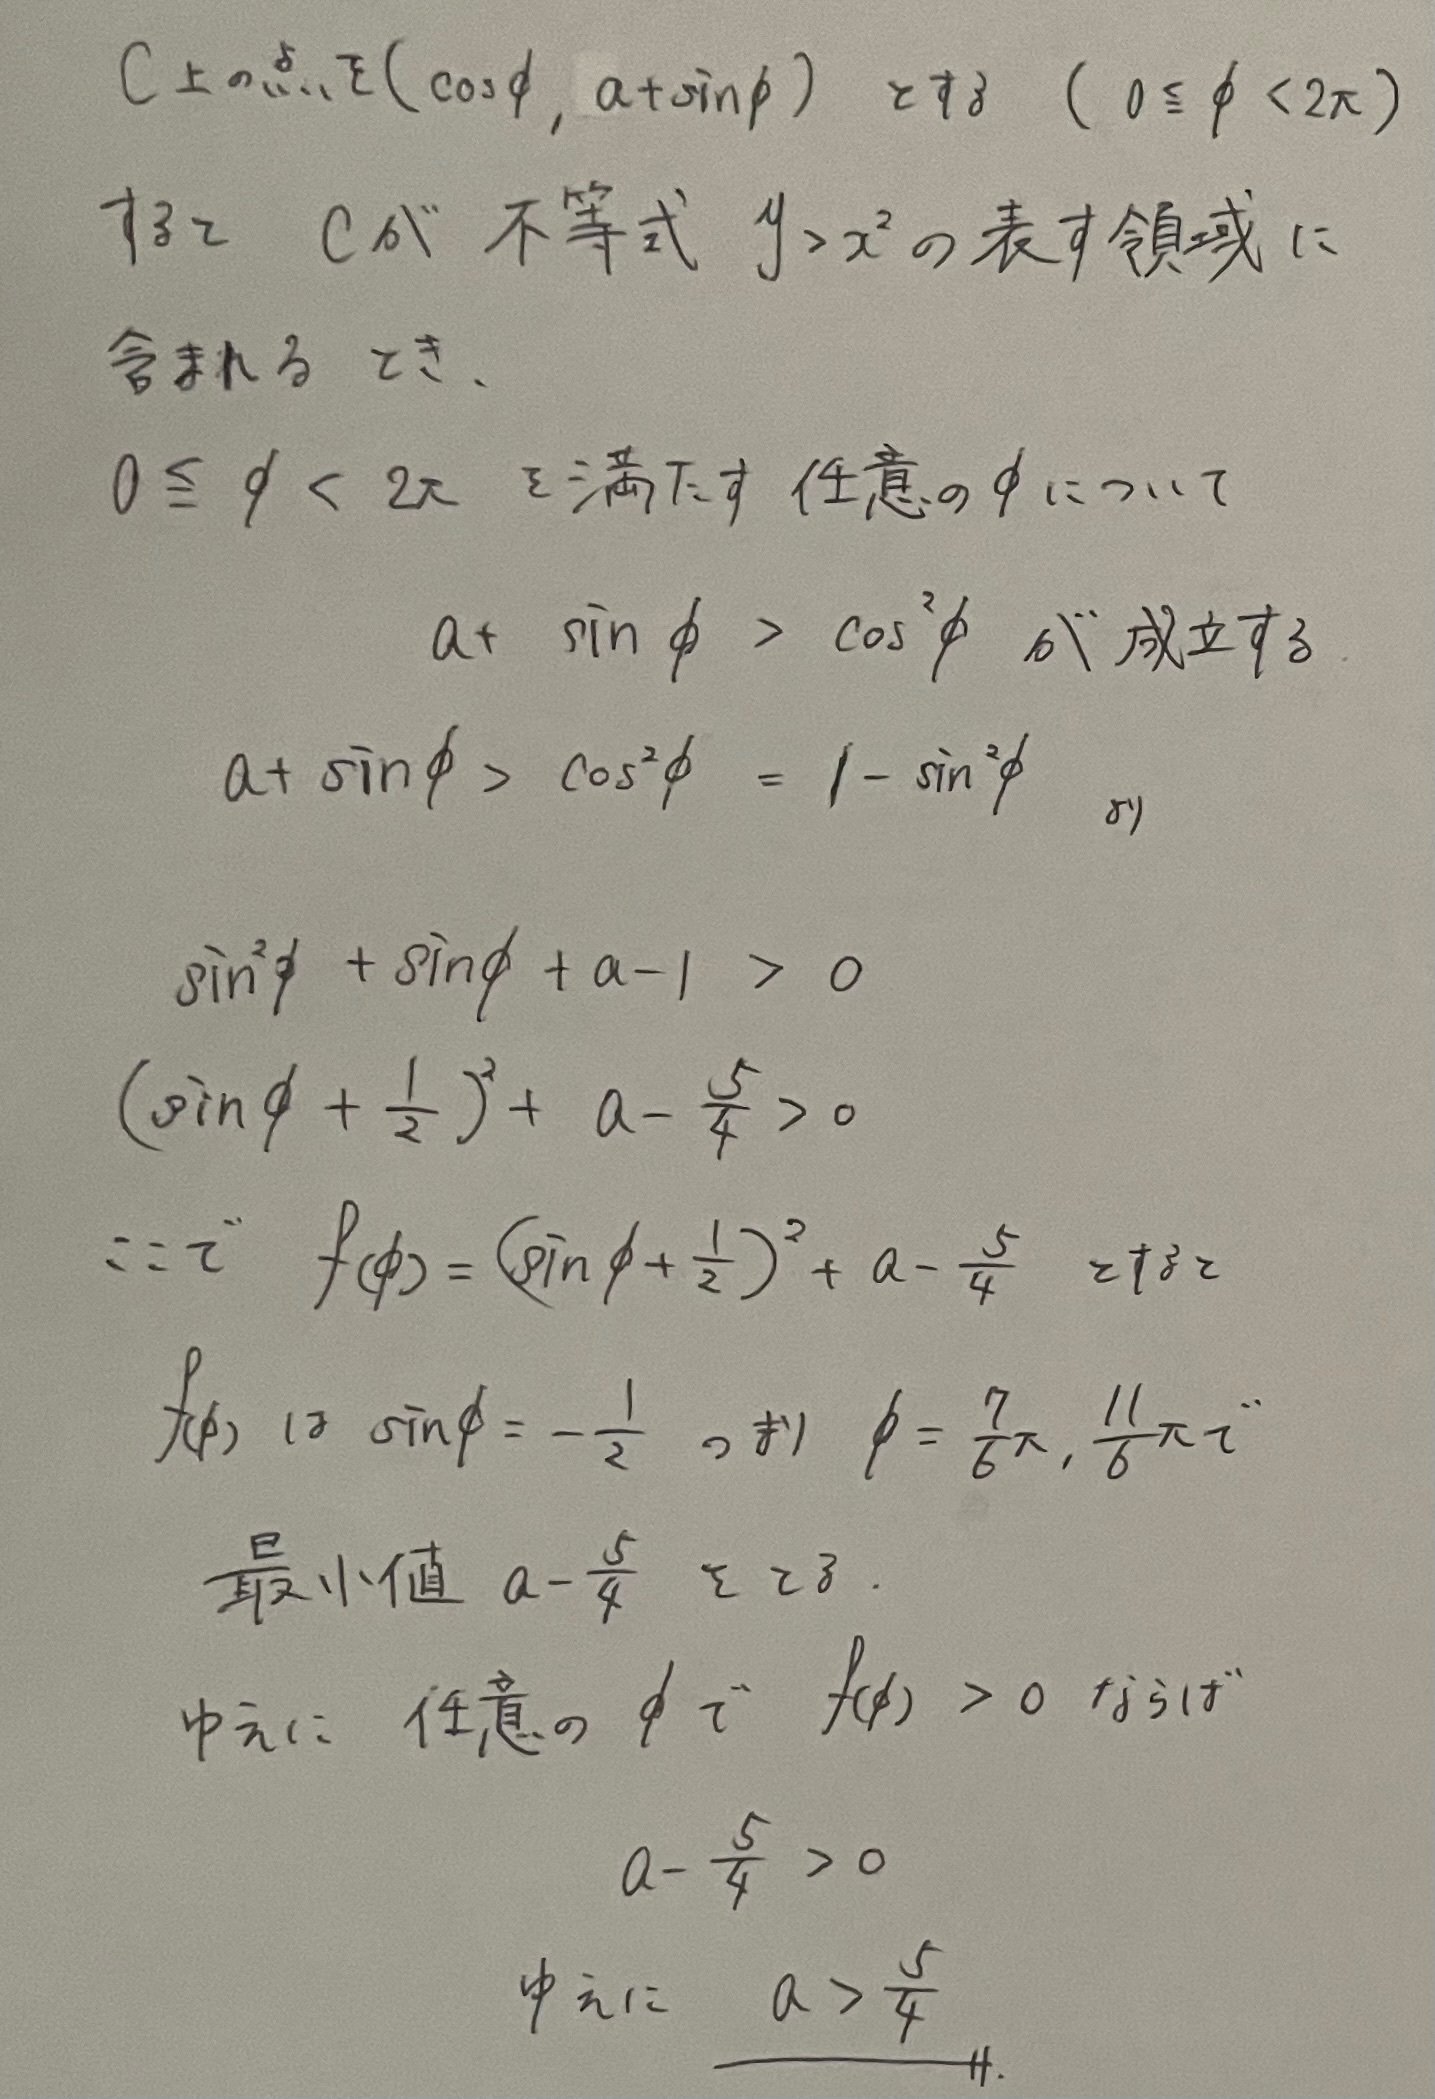 C上の点を(cosφ, a+sinφ) とする (0≦φ<2π)
すると Cが 不等式 y>x²の表す領域に
含まれる とき、
0≦φ<2π を満たす 任意のφについて
a+ sinφ > cos²φ が成立する.
a+sinφ > cos²φ = 1-sin²φ より
sin²φ +sinφ+a-1 > 0
(sinφ+1/2)²+ a-5/4>0
ここで f(φ)=(sinφ+1/2)²+a-5/4 とすると
f(φ) は sinφ=-1/2 つまり φ=7/6π, 11/6πで
最小値 a-5/4 をとる.
ゆえに 任意の φで f(φ)>0 ならば
a-5/4>0
ゆえに a>5/4